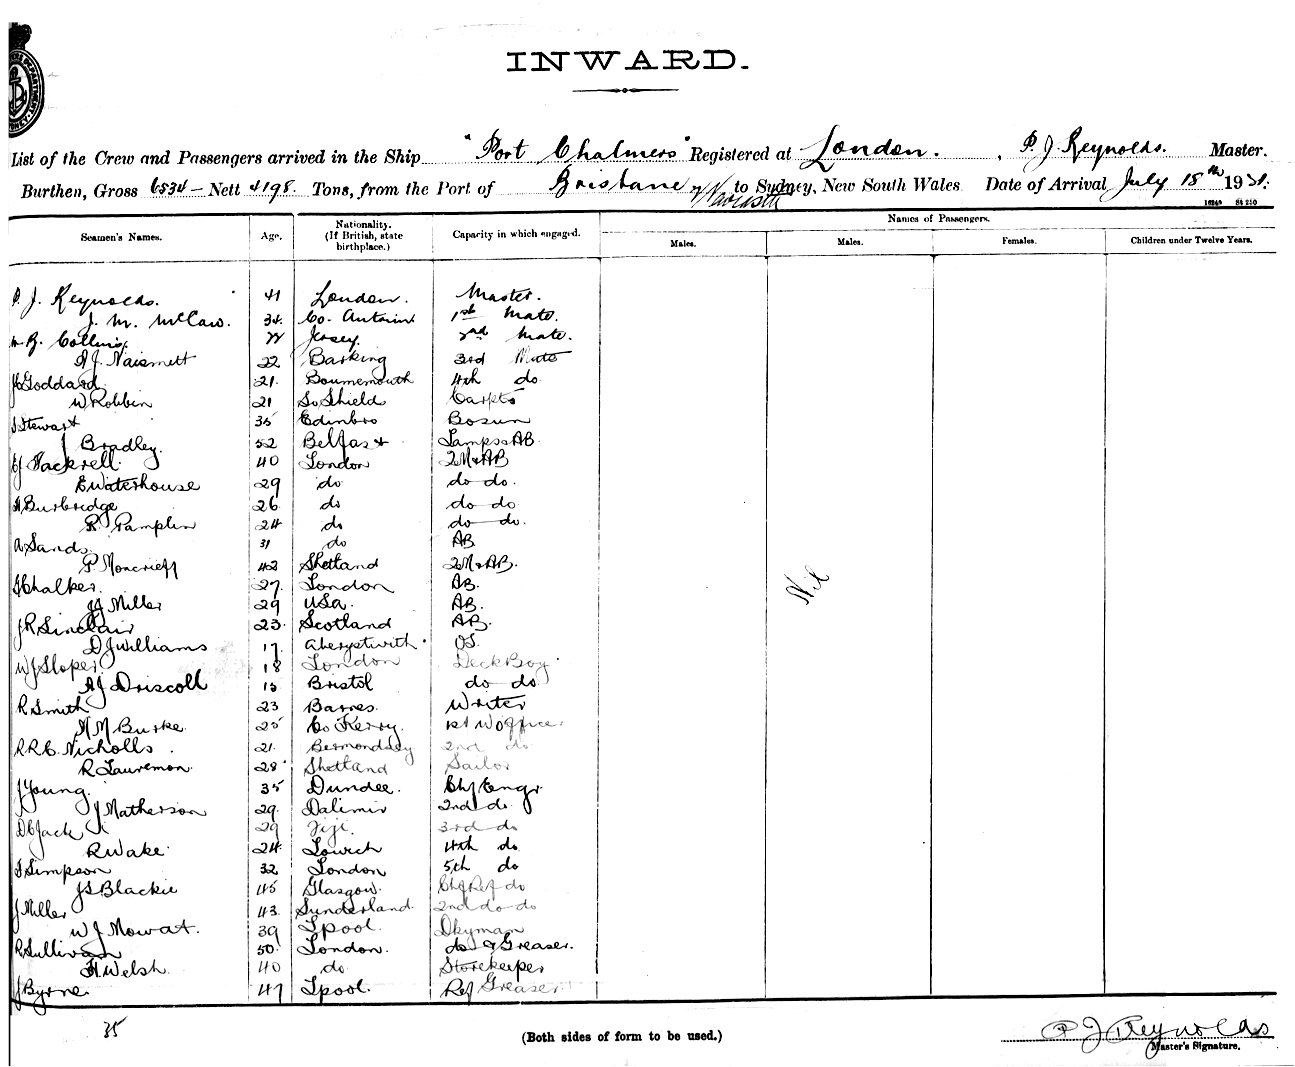 INWARD.
List of the Crew and Passengers arrived in the Ship "Port Chalmers" Registered at London. , P. J. Reynolds. Master.
Burthen, Gross 6534 - Nett 4198. Tons, from the Port of Brisbane to Sydney, New South Wales Date of Arrival July 18th 1931.
16249 84 250
Seamen's Names. Age. Nationality. (If British, state birthplace.) Capacity in which engaged. Names of Passengers.
Males. Males. Females. Children under Twelve Years.
P. J. Reynolds. 41 London. Master.
J. M. McCaw. 34. Co. Antrim 1st Mate.
Collins. Jersey. 2nd Mate.
A J. Naismett 22 Barking 3rd Mate
Goddard. 21. Bournemouth 4th do
W Robbin 21 So Shields Carptr
J Stewart 35 Edinbro Bosun
J Bradley. 52 Belfast Lamps & AB
Hackrell. 40 London 2M & AB
E Waterhouse 29 do do do.
H Burbridge 26 do do do
R. Pamplin 24 do do do.
A Sands. 31 do AB
P Moncrieff 42 Shetland 2M & AB.
Chalker. 27. London AB.
Miller 29 USa. AB.
J R Sinclair 23 Scotland AB.
D J Williams 17. Aberystwith OS.
W J Sloper 18 London Deck Boy
A J Driscoll 15 Bristol do do
R Smith 23 Barnes Writer
H M Burke. 25 Co Kerry. 1st W officer
R R C Nicholls. 21. Bermondsey 2nd do
R Laurenson. 28 Shetland Sailor
J Young. 35 Dundee. Chf Engr
J Matherson 29. 2nd do
D C Jack 29 Fiji. 3rd do
R Wake. 24. 4th do
Simpson 32 London 5th do
J S Blackie 45 Glasgow. Chf Ref do
J Miller 43. Sunderland. 2nd do do
W J Mowat. 39 Lpool. Dkyman
R Sullivan 50. London. do & Greaser.
H. Welsh. 40 do Storekeeper
J Byrne 47 Lpool. Ref Greaser
Nil
35
(Both sides of form to be used.)
P J Reynolds
Master's Signature.